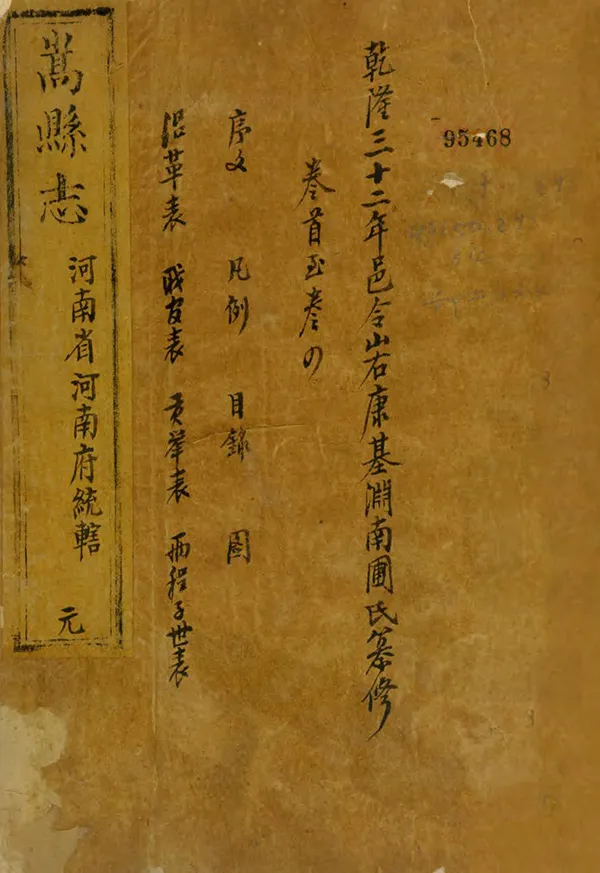 95468
乾隆三十二年邑令山右康基淵南圃氏纂修
卷首至卷四
序文 凡例 目錄 圖
沿革表 職官表 貢舉表 兩程子世表
嵩縣志 河南省河南府統轄 元